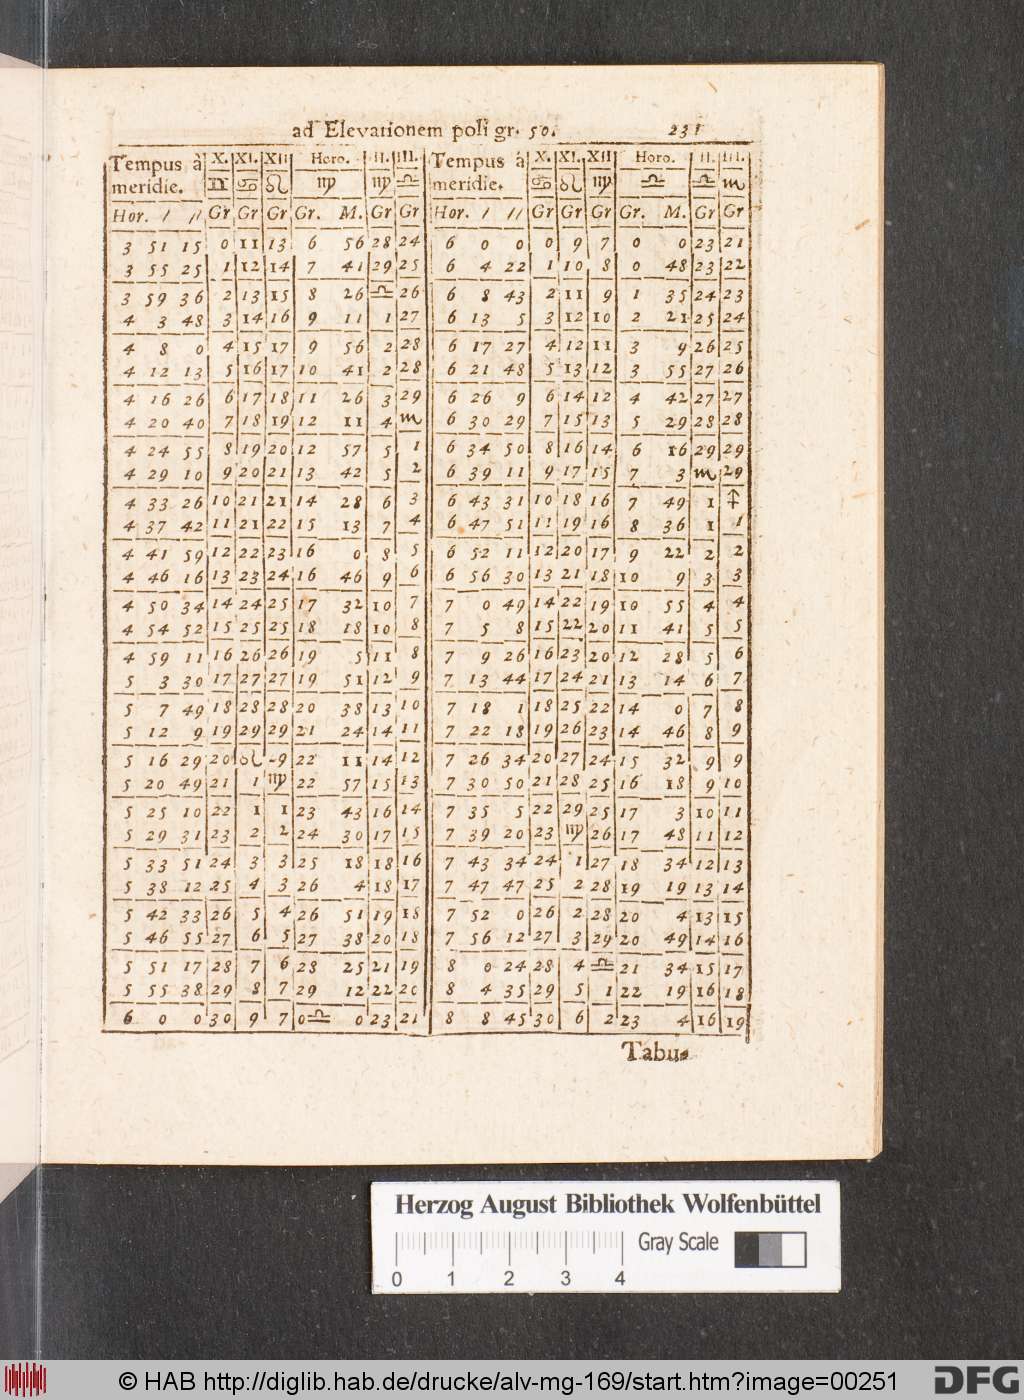 ad Elevationem poli gr. 50. 231
Tempus à X. XI. XII Horo. II. III. Tempus á X. XI. XII Horo. II. III.
meridie. ♊ ♋ ♌ ♍ ♍ ♎ meridie. ♋ ♌ ♍ ♎ ♎ ♏
Hor. / // Gr Gr Gr Gr. M. Gr Gr Hor. / // Gr Gr Gr Gr. M. Gr Gr
3 51 15 0 11 13 6 56 28 24 6 0 0 0 9 7 0 0 23 21
3 55 25 1 12 14 7 41 29 25 6 4 22 1 10 8 0 48 23 22
3 59 36 2 13 15 8 26 ♎ 26 6 8 43 2 11 9 1 35 24 23
4 3 48 3 14 16 9 11 1 27 6 13 5 3 12 10 2 21 25 24
4 8 0 4 15 17 9 56 2 28 6 17 27 4 12 11 3 9 26 25
4 12 13 5 16 17 10 41 2 28 6 21 48 5 13 12 3 55 27 26
4 16 26 6 17 18 11 26 3 29 6 26 9 6 14 12 4 42 27 27
4 20 40 7 18 19 12 11 4 ♏ 6 30 29 7 15 13 5 29 28 28
4 24 55 8 19 20 12 57 5 1 6 34 50 8 16 14 6 16 29 29
4 29 10 9 20 21 13 42 5 2 6 39 11 9 17 15 7 3 ♏ 29
4 33 26 10 21 21 14 28 6 3 6 43 31 10 18 16 7 49 1 ♐
4 37 42 11 21 22 15 13 7 4 6 47 51 11 19 16 8 36 1 1
4 41 59 12 22 23 16 0 8 5 6 52 11 12 20 17 9 22 2 2
4 46 16 13 23 24 16 46 9 6 6 56 30 13 21 18 10 9 3 3
4 50 34 14 24 25 17 32 10 7 7 0 49 14 22 19 10 55 4 4
4 54 52 15 25 25 18 18 10 8 7 5 8 15 22 20 11 41 5 5
4 59 11 16 26 26 19 5 11 8 7 9 26 16 23 20 12 28 5 6
5 3 30 17 27 27 19 51 12 9 7 13 44 17 24 21 13 14 6 7
5 7 49 18 28 28 20 38 13 10 7 18 1 18 25 22 14 0 7 8
5 12 9 19 29 29 21 24 14 11 7 22 18 19 26 23 14 46 8 9
5 16 29 20 ♌ 9 22 11 14 12 7 26 34 20 27 24 15 32 9 9
5 20 49 21 1 ♍ 22 57 15 13 7 30 50 21 28 25 16 18 9 10
5 25 10 22 1 1 23 43 16 14 7 35 5 22 29 25 17 3 10 11
5 29 31 23 2 2 24 30 17 15 7 39 20 23 ♍ 26 17 48 11 12
5 33 51 24 3 3 25 18 18 16 7 43 34 24 1 27 18 34 12 13
5 38 12 25 4 3 26 4 18 17 7 47 47 25 2 28 19 19 13 14
5 42 33 26 5 4 26 51 19 18 7 52 0 26 2 28 20 4 13 15
5 46 55 27 6 5 27 38 20 18 7 56 12 27 3 29 20 49 14 16
5 51 17 28 7 6 28 25 21 19 8 0 24 28 4 ♎ 21 34 15 17
5 55 38 29 8 7 29 12 22 20 8 4 35 29 5 1 22 19 16 18
6 0 0 30 9 7 0 ♎ 0 23 21 8 8 45 30 6 2 23 4 16 19
Tabu-
Herzog August Bibliothek Wolfenbüttel
Gray Scale
0 1 2 3 4
© HAB http://diglib.hab.de/drucke/alv-mg-169/start.htm?image=00251
DFG